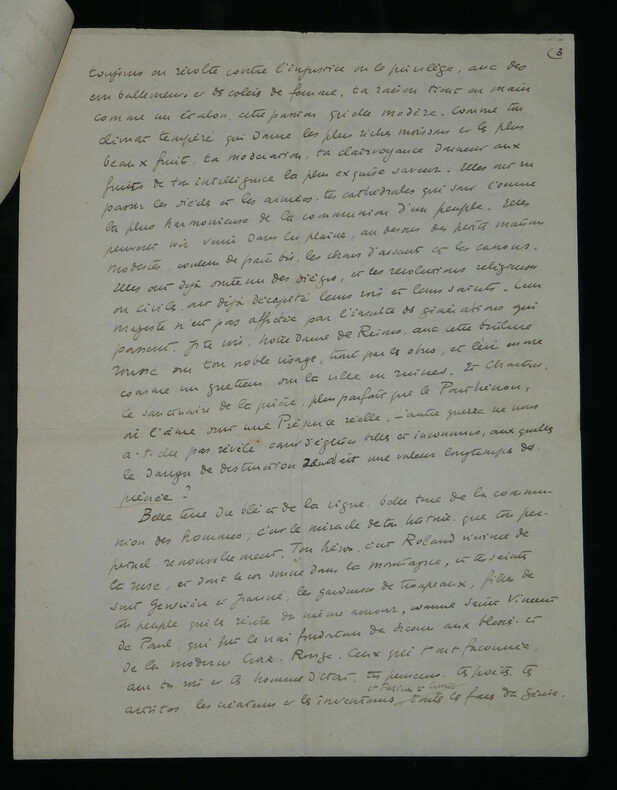 3
toujours en révolte contre l'injustice ou le privilège, avec des
emballements et des colères de femme, ta raison tient en main
comme un étalon, cette passion qu'elle modère. Comme ton
climat tempéré qui donne les plus riches moissons et les plus
beaux fruits, ta modération, ta clairvoyance donnent aux
fruits de ton intelligence la plus exquise saveur. Elles ont vu
passer les siècles et les armées, tes cathédrales qui sont l'œuvre
la plus harmonieuse de la communion d'un peuple. Elles
peuvent voir venir dans les plaines, au dessus des petites maisons
modestes, couleur de pain bis, les chars d'assaut et les canons.
Elles ont déjà soutenu des sièges, et les révolutions religieuses
ou civiles, ont déjà décapité leurs rois et leurs saints. Leur
majesté n'est pas affectée par l'insulte des générations qui
passent. Je te vois, Notre Dame de Reims, avec cette brûlure
rousse sur ton noble visage, troué par les obus, et levé encore
comme un guetteur sur la ville en ruines. Et Chartres,
le sanctuaire de la prière, plus parfait que le Parthénon,
où l'âme sent une Présence réelle. L'autre guerre ne nous
a-t-elle pas révélé tant d'églises belles et inconnues, auxquelles
le danger de destruction rendait une valeur longtemps dé-
préciée ?
Belle terre du blé et de la vigne, belle terre de la commu-
nion des hommes, c'est le miracle de ton histoire que ton per-
pétuel renouvellement. Ton héros, c'est Roland victime de
la ruse, et dont le cor sonne dans la montagne, et tes saintes
sont Geneviève et Jeanne, les gardeuses de troupeaux, filles de
ton peuple qui les révère du même amour, comme Saint Vincent
de Paul, qui fut le vrai fondateur du secours aux blessés et
de la moderne Croix-Rouge. Ceux qui t'ont façonnée,
avec tes rois et tes hommes d'état, tes penseurs, tes poètes, tes
et Pasteur et Curie
artistes les créateurs et les inventeurs, toutes les faces du Génie.